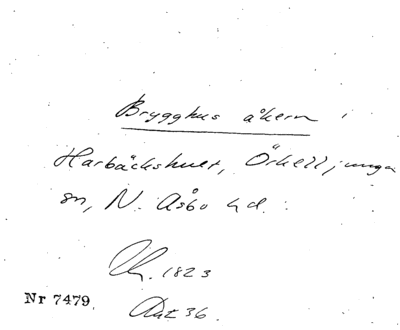 Brygghus åkern i
Harbäckshult, Örkelljunga
sn, N. Åsbo hd.
1823
Nr 7479
Akt 36.